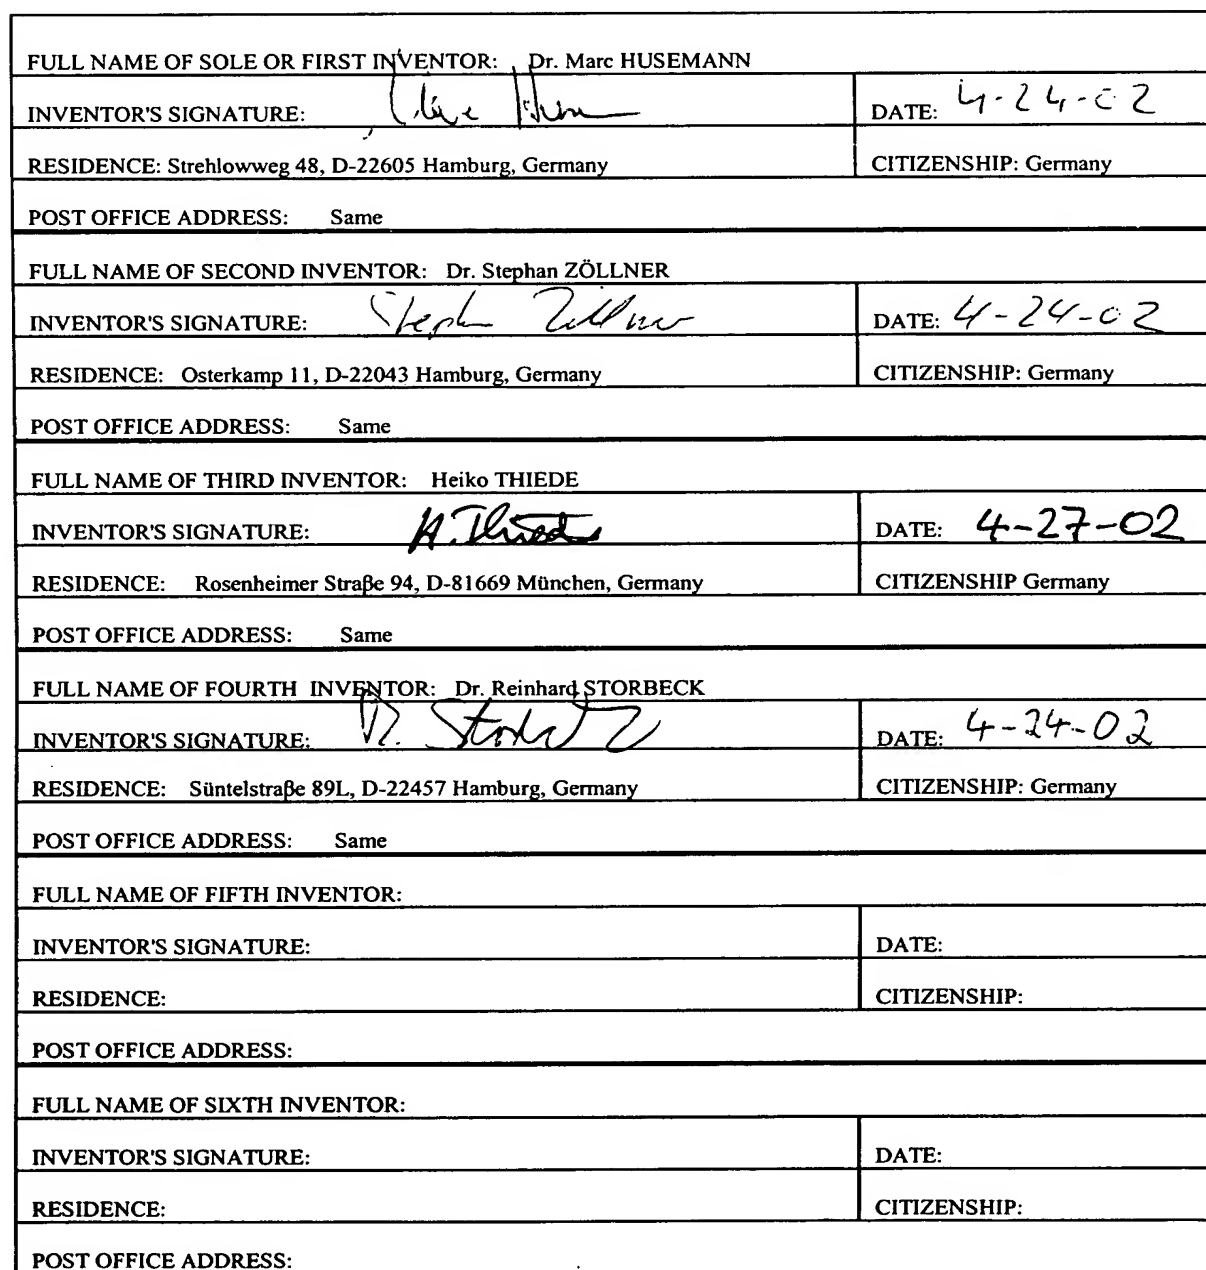 FULL NAME OF SOLE OR FIRST INVENTOR: Dr. Marc HUSEMANN
INVENTOR'S SIGNATURE: DATE: 4-24-02
RESIDENCE: Strehlowweg 48, D-22605 Hamburg, Germany CITIZENSHIP: Germany
POST OFFICE ADDRESS: Same
FULL NAME OF SECOND INVENTOR: Dr. Stephan ZÖLLNER
INVENTOR'S SIGNATURE: Stephan Zöllner DATE: 4-24-02
RESIDENCE: Osterkamp 11, D-22043 Hamburg, Germany CITIZENSHIP: Germany
POST OFFICE ADDRESS: Same
FULL NAME OF THIRD INVENTOR: Heiko THIEDE
INVENTOR'S SIGNATURE: H. Thiede DATE: 4-27-02
RESIDENCE: Rosenheimer Straße 94, D-81669 München, Germany CITIZENSHIP Germany
POST OFFICE ADDRESS: Same
FULL NAME OF FOURTH INVENTOR: Dr. Reinhard STORBECK
INVENTOR'S SIGNATURE: R. Storbeck DATE: 4-24-02
RESIDENCE: Süntelstraße 89L, D-22457 Hamburg, Germany CITIZENSHIP: Germany
POST OFFICE ADDRESS: Same
FULL NAME OF FIFTH INVENTOR:
INVENTOR'S SIGNATURE: DATE:
RESIDENCE: CITIZENSHIP:
POST OFFICE ADDRESS:
FULL NAME OF SIXTH INVENTOR:
INVENTOR'S SIGNATURE: DATE:
RESIDENCE: CITIZENSHIP:
POST OFFICE ADDRESS: